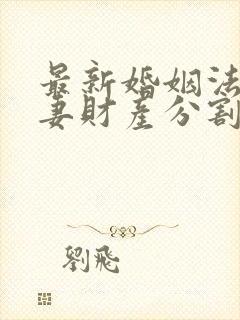 最新婚姻法
妻財產分割
劉飛